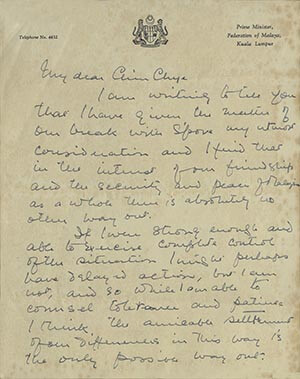 Telephone No. 4451
Prime Minister,
Federation of Malaya,
Kuala Lumpur
My dear Chin Chye
I am writing to tell you
that I have given the matter of
our break with S'pore my utmost
consideration and I find that
in the interest of our friendship
and the security and peace of Malaysia
as a whole there is absolutely no
other way out.
If I were strong enough and
able to exercise complete control
of the situation I might perhaps
have delayed action, but I am
not, and so while I am able to
counsel tolerance and patience
I think the amicable settlement
of our differences in this way is
the only possible way out.